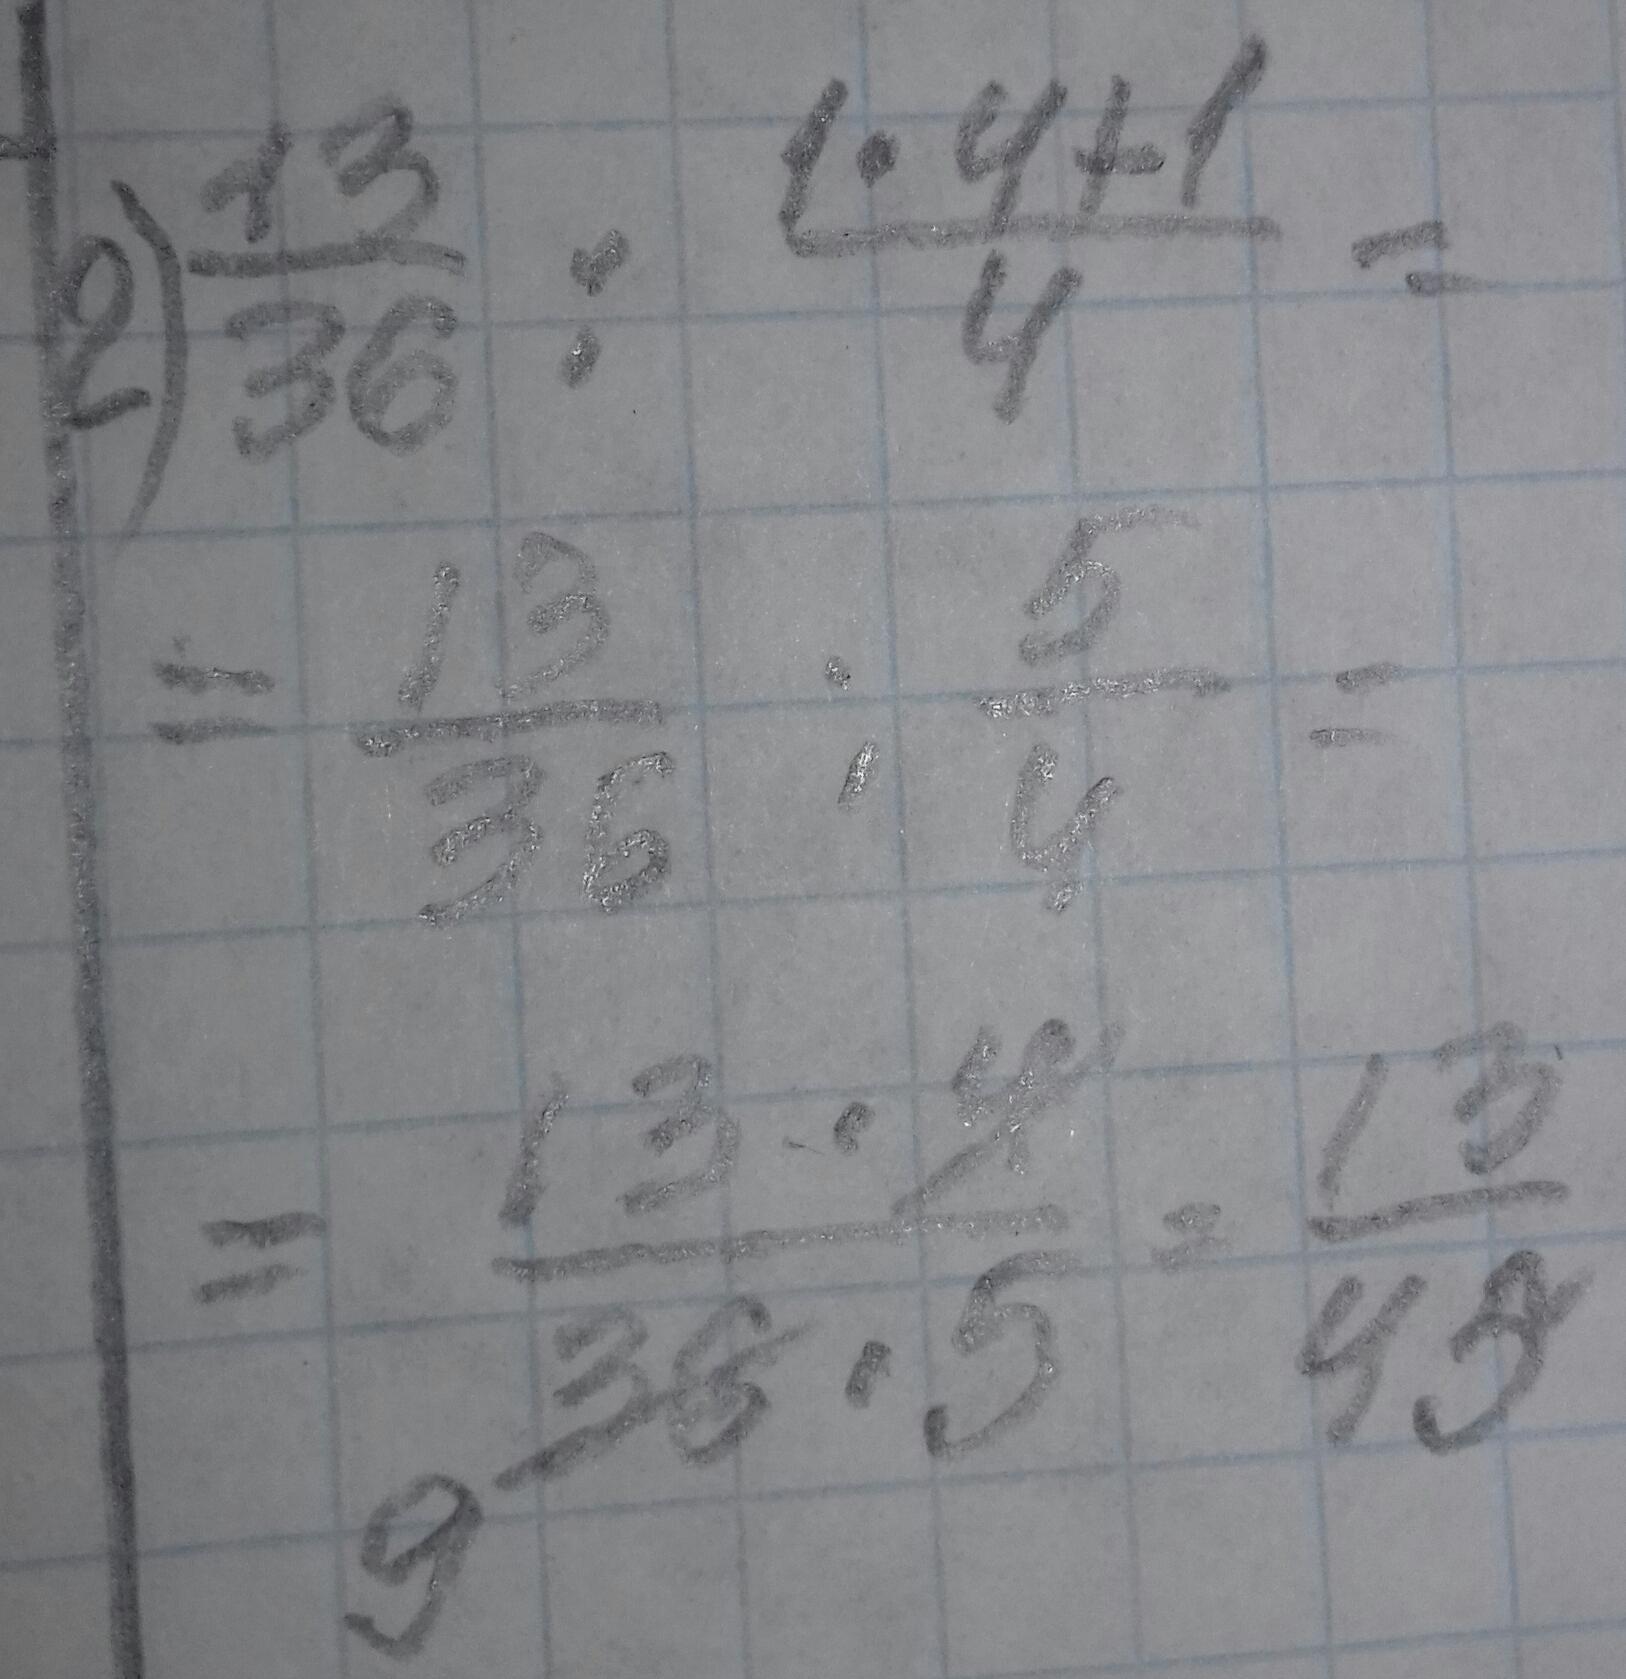 2) 13/36 : (1·4+1)/4 =
= 13/36 : 5/4 =
= (13·4)/(36·5) = 13/45
9